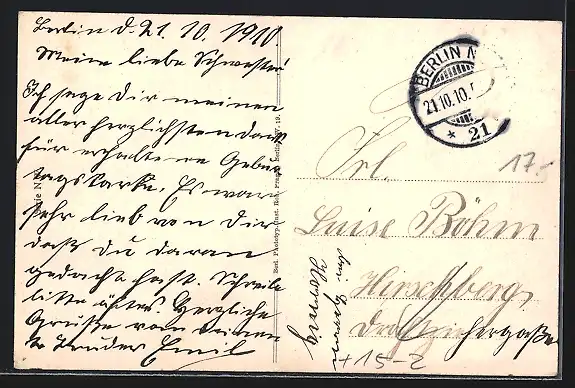 Berlin d. 21. 10. 1910.
Meine liebe Schwester!
Ich sage Dir meinen
aller herzlichsten Dank
für erhaltene Gebur-
tagskarte. Es war
sehr lieb von Dir
daß Du daran
gedacht hast. Schreibe
bitte öfter. Herzliche
Grüße von Deinem
Bruder Emil
BERLIN N
21.10.10.
* 21
17.-
Frl.
Luise Böhm
Hirschberg,
Drahtziehergasse
+ 15-2